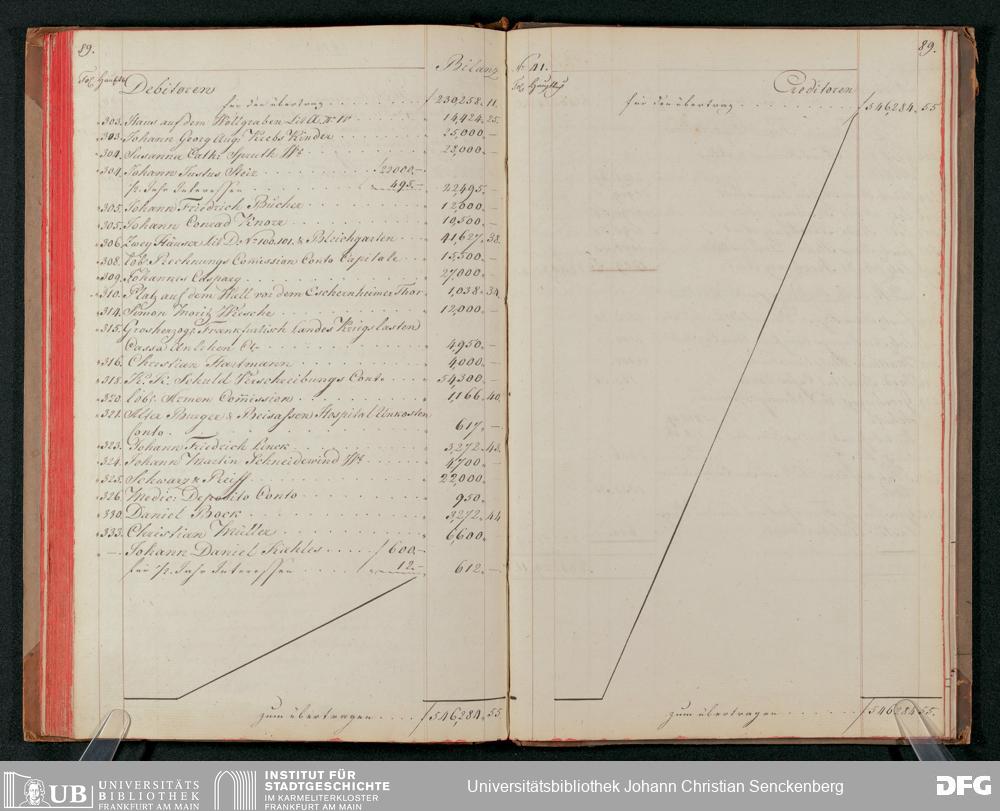 89.
Bilanz
Debitoren
für den übertrag . . . . . . . ƒ 230,258. 11.
303. Haus auf dem Wollgraben Lit A. 14,424. 25.
303. Johann Georg Aug: Krebs Kinder 25,000. —
304. Susanna Cath: Spruth Wb 23,000. —
304. Johann Justus Steiz ƒ 22000. —
½ Jahr Interessen 495. — 22,495. —
305. Johann Friedrich Bücher 12,000. —
305. Johann Conrad Knorr 10,500. —
306. Zwey Häuser Lit D. No 100.101. & Bleichgarten 41,627. 38.
308. Löb. Rechnungs Com̅ission Conto Capitale 15,500. —
309. Johannes Caspary 27000. —
310. Platz auf dem Wall vor dem Eschenheimer Thor 1,038. 34.
314. Simon Moritz 12,000. —
315. Grosherzogl. Frankfurtisch Landes Kriegslasten
Cassa Anlehen Ct. 4950. —
316. Christian Hartmann 4000. —
318. K. K. Schuld Verschreibungs Conto 54,300. —
320. löbl. Armen Com̅ission 1,166. 40.
321. Alter Burger & Beisassen Hospital Unkosten
Conto. 617. —
323. Johann Friedrich Linck 3,272. 43.
324. Johann Martin Schneidewind Wb 4700. —
325. Schwarz & Reiff 22,000. —
326. Medic: Deposito Conto 950. —
330. Daniel Bock 3272. 44
333. Christian Müller 6,600. —
— Johann Daniel Kahles ƒ 600. —
für ½ Jahr Interessen 12. — 612. —
zum übertragen . . . . ƒ 546,284. 55
No 41.
89.
Creditoren
für den übertrag . . . . . . . ƒ 546,284. 55
zum übertragen . . . . . . . ƒ 546,284. 55.
UB UNIVERSITÄTS
BIBLIOTHEK
FRANKFURT AM MAIN
INSTITUT FÜR
STADTGESCHICHTE
IM KARMELITERKLOSTER
FRANKFURT AM MAIN
Universitätsbibliothek Johann Christian Senckenberg
DFG